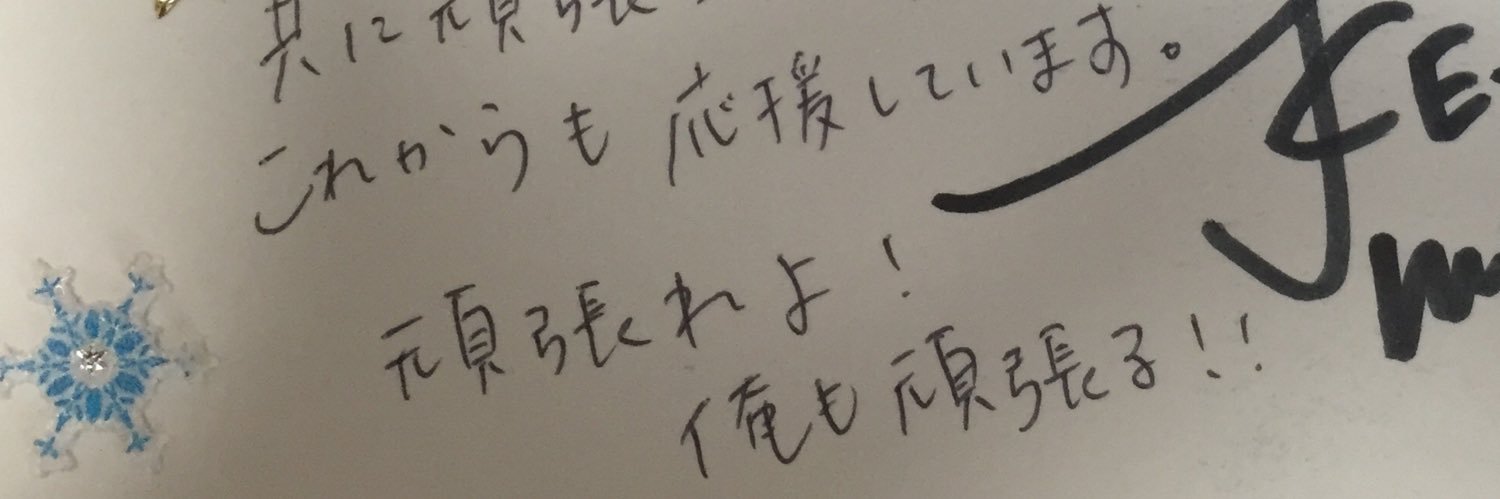 共に頑張
これからも応援しています。
頑張れよ！
俺も頑張る！！